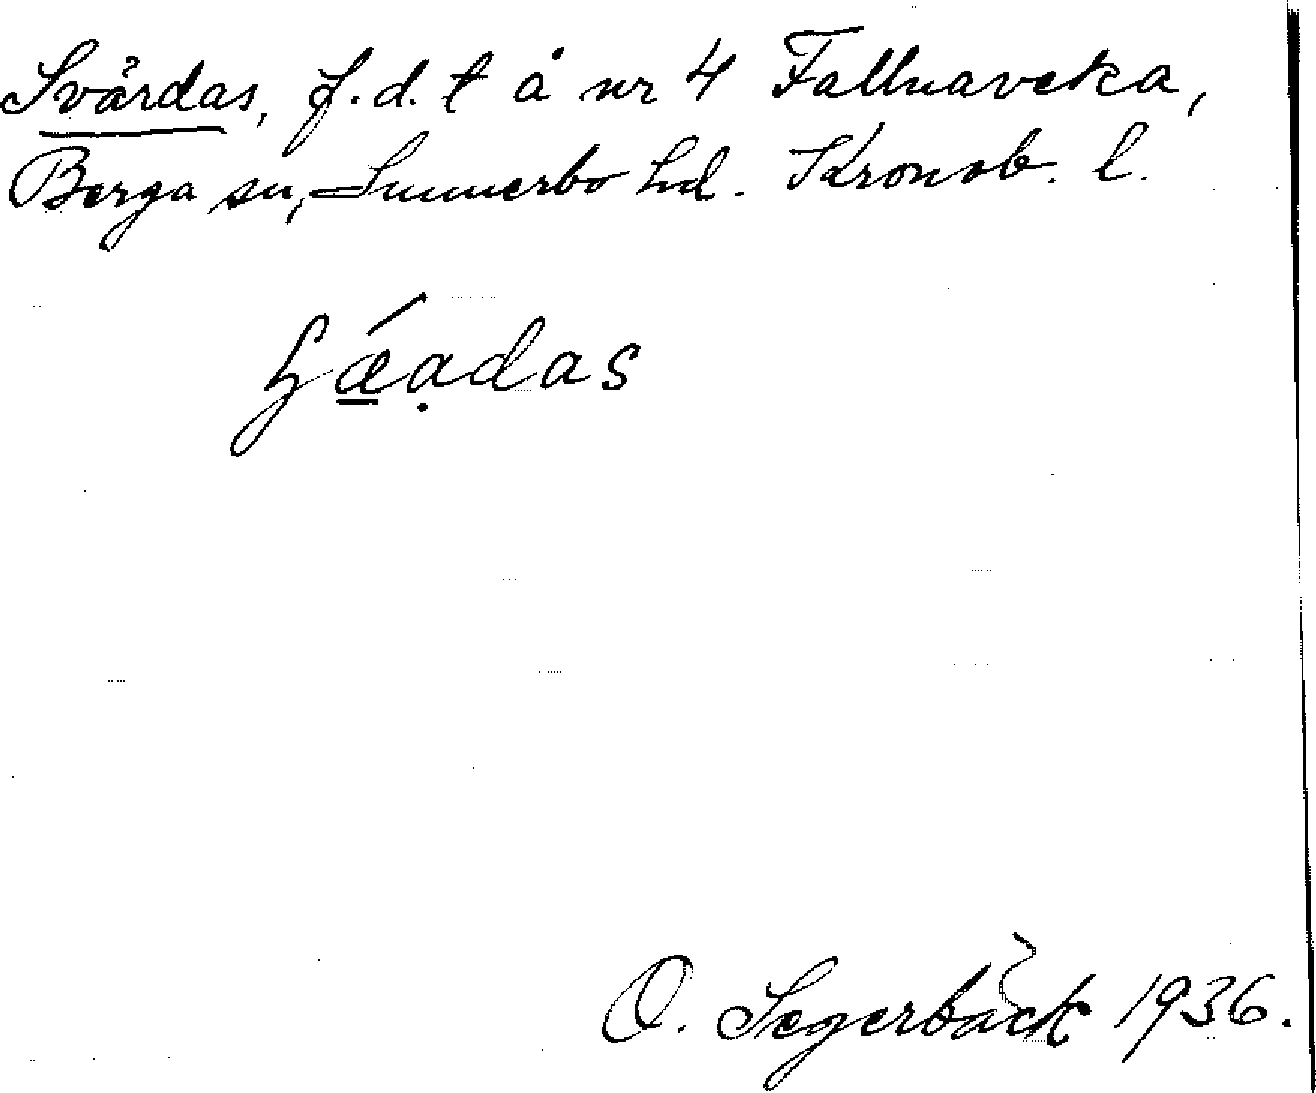 Svärdas, f.d. t å nr 4 Fallnaveka,
Berga sn, Sunnerbo hd. Kronob. l.
O. Segerbäck 1936.